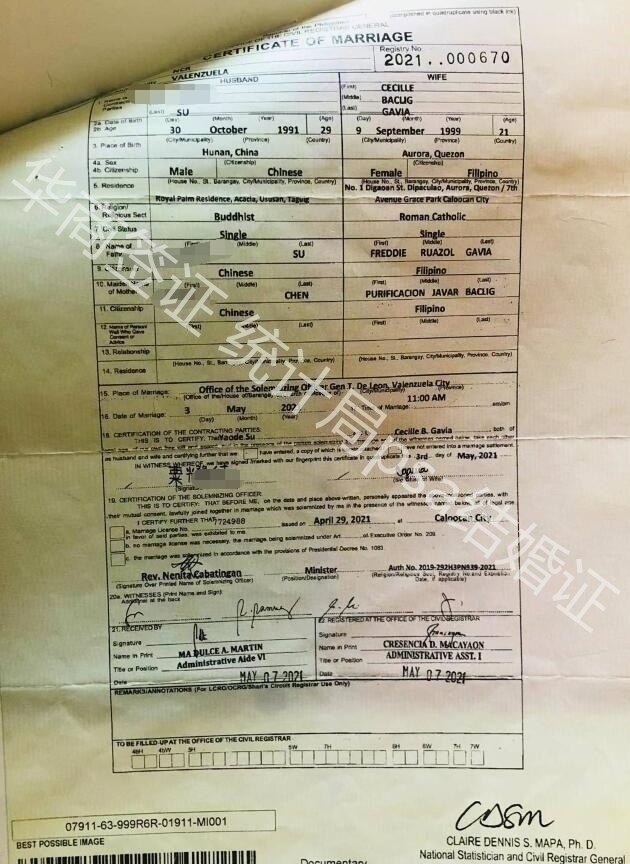 (accomplished in quadruplicate using black ink)
OFFICE OF THE CIVIL REGISTRAR GENERAL
CERTIFICATE OF MARRIAGE
Registry No.
2021..000670
VALENZUELA
HUSBAND WIFE
1. Name of Contracting Parties
(First) CECILLE
(Middle) BACLIG
(Last) SU (Last) GAVIA
2a. Date of Birth (Day) (Month) (Year) (Age) (Day) (Month) (Year) (Age)
2b. Age 30 October 1991 29 9 September 1999 21
3. Place of Birth (City/Municipality) (Province) (Country) (City/Municipality) (Province) (Country)
Hunan, China Aurora, Quezon
4a. Sex (Citizenship) (Citizenship)
4b. Citizenship Male Chinese Female Filipino
5. Residence (House No., St., Barangay, City/Municipality, Province, Country) (House No., St., Barangay, City/Municipality, Province, Country)
No. 1 Digaoan St. Dipaculao, Aurora, Quezon / 7th
Royal Palm Residence, Acacia, Ususan, Taguig Avenue Grace Park Caloocan City
6. Religion/ Religious Sect Buddhist Roman Catholic
7. Civil Status Single Single
8. Name of Father (First) (Middle) (Last) (First) (Middle) (Last)
SU FREDDIE RUAZOL GAVIA
9. Citizenship Chinese Filipino
10. Maiden Name of Mother (First) (Middle) (Last) (First) (Middle) (Last)
CHEN PURIFICACION JAVAR BACLIG
11. Citizenship Chinese Filipino
12. Name of Person/ Wali Who Gave Consent or Advice (First) (Middle) (Last) (First) (Middle) (Last)
13. Relationship
14. Residence (House No., St., Barangay, City/Municipality, Province, Country) (House No., St., Barangay, City/Municipality, Province, Country)
15. Place of Marriage: Office of the Solemnizing Officer Gen T. De Leon, Valenzuela City
(City/Municipality) (Province)
16. Date of Marriage: 3 May 202 Time of Marriage: 11:00 AM am/pm
(Day) (Month) (Year)
18. CERTIFICATION OF THE CONTRACTING PARTIES:
THIS IS TO CERTIFY: That Yaode Su Cecille B. Gavia both of
as husband and wife and certifying further that we have entered, a copy of which is have not entered into a marriage settlement.
IN WITNESS WHEREOF, we have signed/marked with our fingerprint this certificate in quadruplicate 3rd day of May, 2021
(Signature of Wife)
19. CERTIFICATION OF THE SOLEMNIZING OFFICER:
THIS IS TO CERTIFY: THAT BEFORE ME, on the date and place above-written, personally appeared the parties, with
their mutual consent, lawfully joined together in marriage which was solemnized by me
I CERTIFY FURTHER THAT:
a. Marriage License No. 7724988 issued on April 29, 2021 at Caloocan City
in favor of said parties, was exhibited to me.
b. no marriage license was necessary, the marriage being solemnized under Art. of Executive Order No. 209.
c. the marriage was solemnized in accordance with the provisions of Presidential Decree No. 1083.
Rev. Nenita Cabatingan Minister Auth No. 2019-292H3PN939-2021
(Signature Over Printed Name of Solemnizing Officer) (Position/Designation) (Religion/Religious Sect, Registry No. and Expiration Date, if applicable)
20a. WITNESSES (Print Name and Sign):
Additional at the back
21. RECEIVED BY 22. REGISTERED AT THE OFFICE OF THE CIVIL REGISTRAR
Signature Signature
Name in Print MA DULCE A. MARTIN Name in Print CRESENCIA D. MACAYAON
Title or Position Administrative Aide VI Title or Position ADMINISTRATIVE ASST. I
Date MAY 07 2021 Date MAY 07 2021
REMARKS/ANNOTATIONS (For LCRO/OCRG/Shari'a Circuit Registrar Use Only)
TO BE FILLED-UP AT THE OFFICE OF THE CIVIL REGISTRAR
4bH 4bW 5H 5W 7H 8H 6W 7H 7W
07911-63-999R6R-01911-MI001
BEST POSSIBLE IMAGE
CLAIRE DENNIS S. MAPA, Ph. D.
National Statistician and Civil Registrar General
Documentary
华商签证 统计局psa结婚证